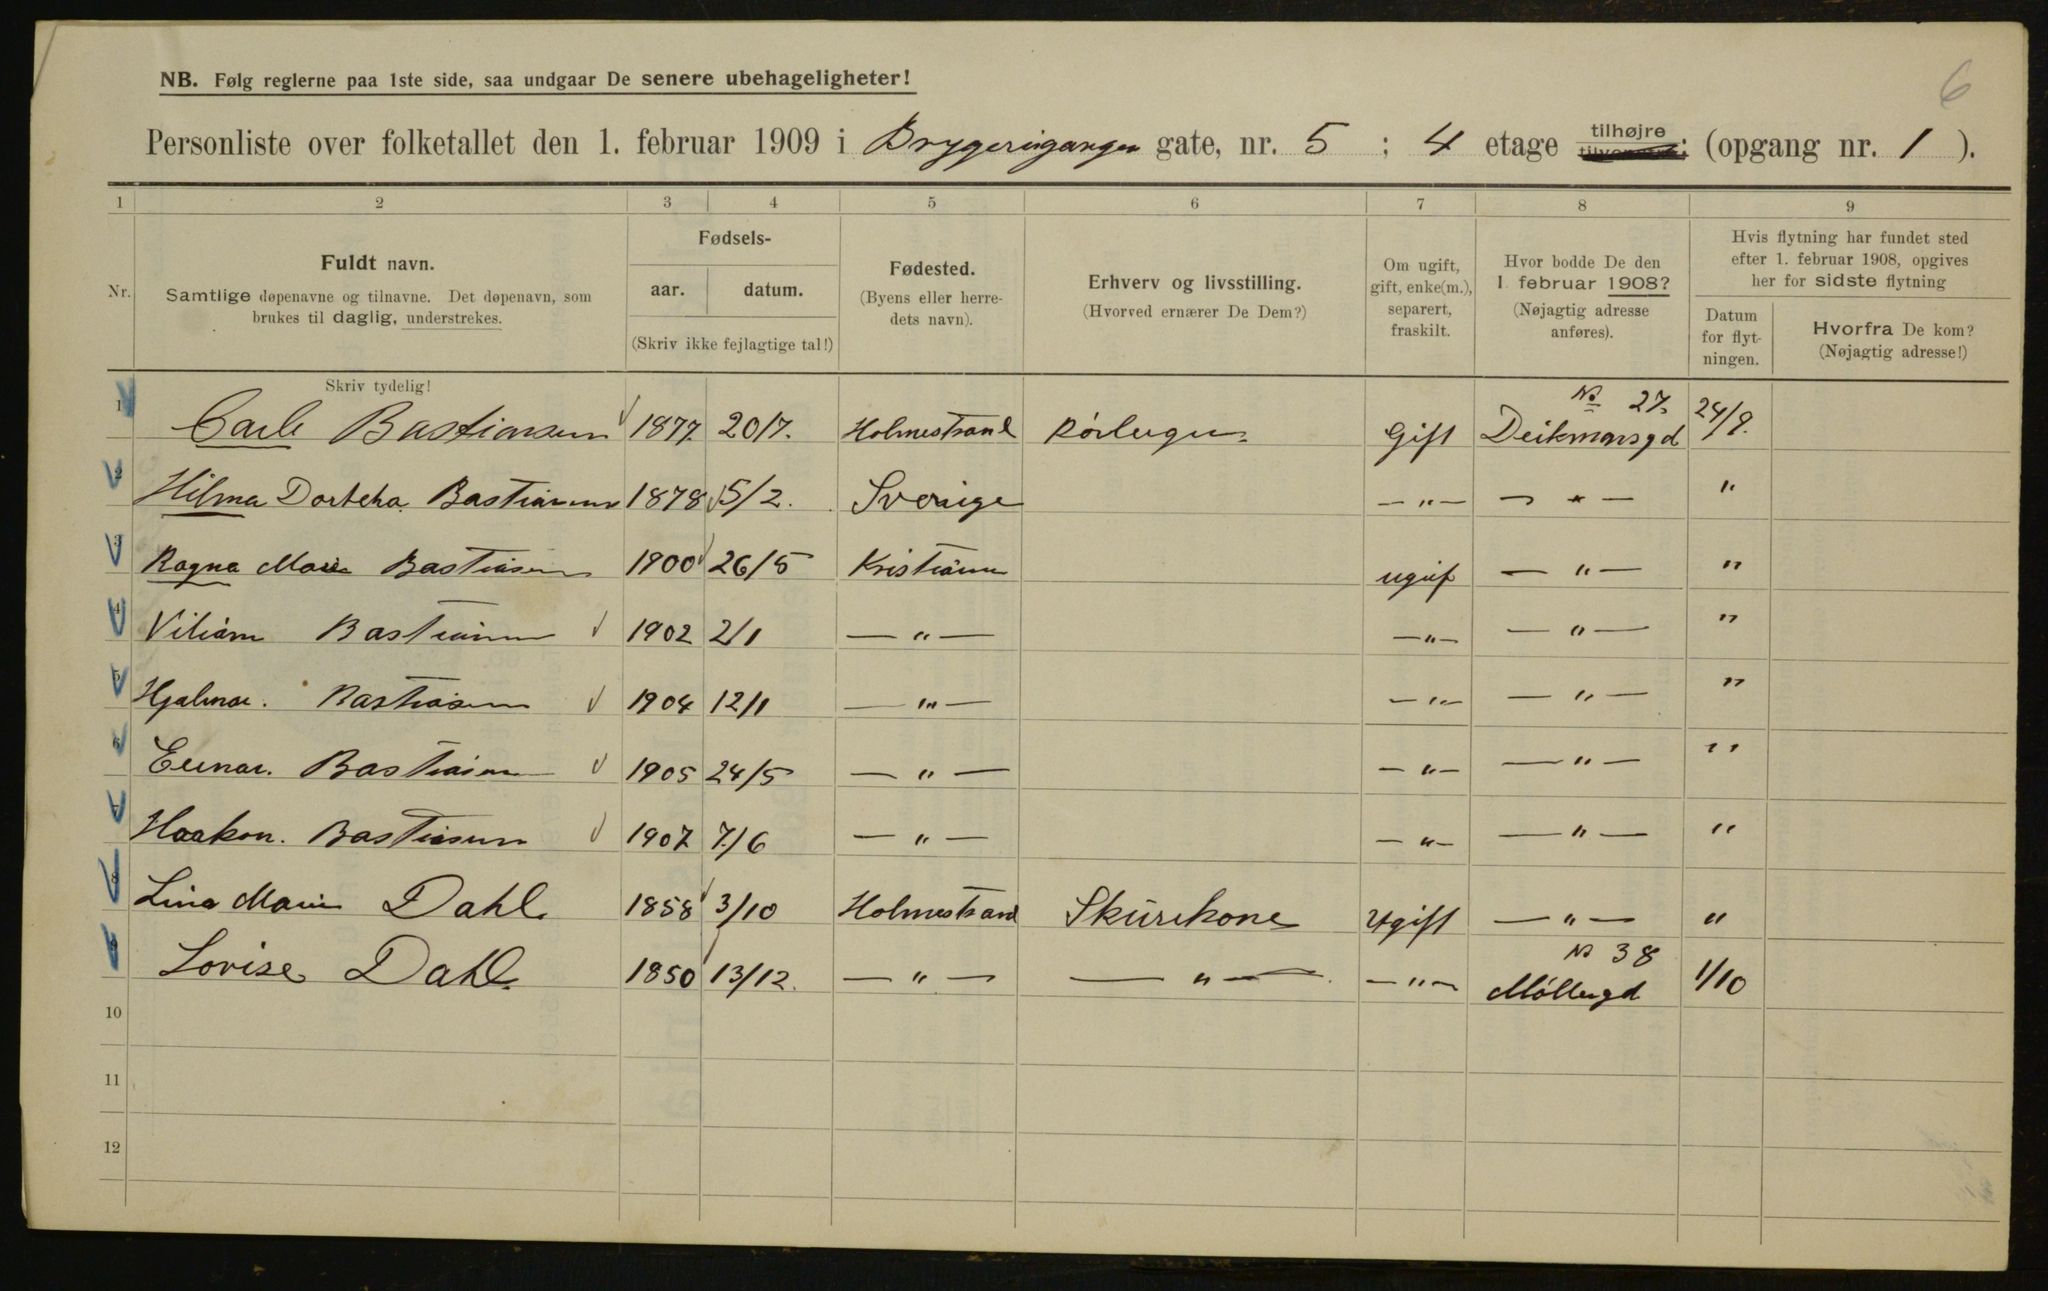 6
NB. Følg reglerne paa 1ste side, saa undgaar De senere ubehageligheter!
Personliste over folketallet den 1. februar 1909 i Brygerigangen gate, nr. 5 ; 4 etage tilhøjre tilvenstre; (opgang nr. 1 ).
1 2 3 4 5 6 7 8 9
Nr.
Fuldt navn.
Samtlige døpenavne og tilnavne. Det døpenavn, som
brukes til daglig, understrekes.
Skriv tydelig!
Fødsels-
aar. datum.
(Skriv ikke fejlagtige tal!)
Fødested.
(Byens eller herre-
dets navn).
Erhverv og livsstilling.
(Hvorved ernærer De Dem?)
Om ugift,
gift, enke(m.),
separert,
fraskilt.
Hvor bodde De den
1. februar 1908?
(Nøjagtig adresse
anføres).
Hvis flytning har fundet sted
efter 1. februar 1908, opgives
her for sidste flytning
Datum
for flyt-
ningen.
Hvorfra De kom?
(Nøjagtig adresse!)
No 27.
1 Carl Bastiansen 1877. 20/7. Holmestrand Rörlegger Gift Deikmansgd 24/9.
2 Hilma Dorteha Bastiansen 1878 5/2. Sverige — " — — " — "
3 Ragna Marie Bastiansen 1900 26/5 Kristiania ugift — " — "
4 Viliam Bastiansen 1902 2/1 — " — — " — — " — "
5 Hjalmar. Bastiansen 1904 12/1 — " — — " — — " — "
6 Einar. Bastiansen 1905 24/5 — " — — " — — " — "
7 Haakon. Bastiansen 1907 7/6 — " — — " — — " — "
8 Lina Marie Dahl 1858 3/10 Holmestrand Skurekone Ugift — " — "
No 38
9 Lovise Dahl. 1850 13/12. — " — — " — — " — Möllergd 1/10
10
11
12